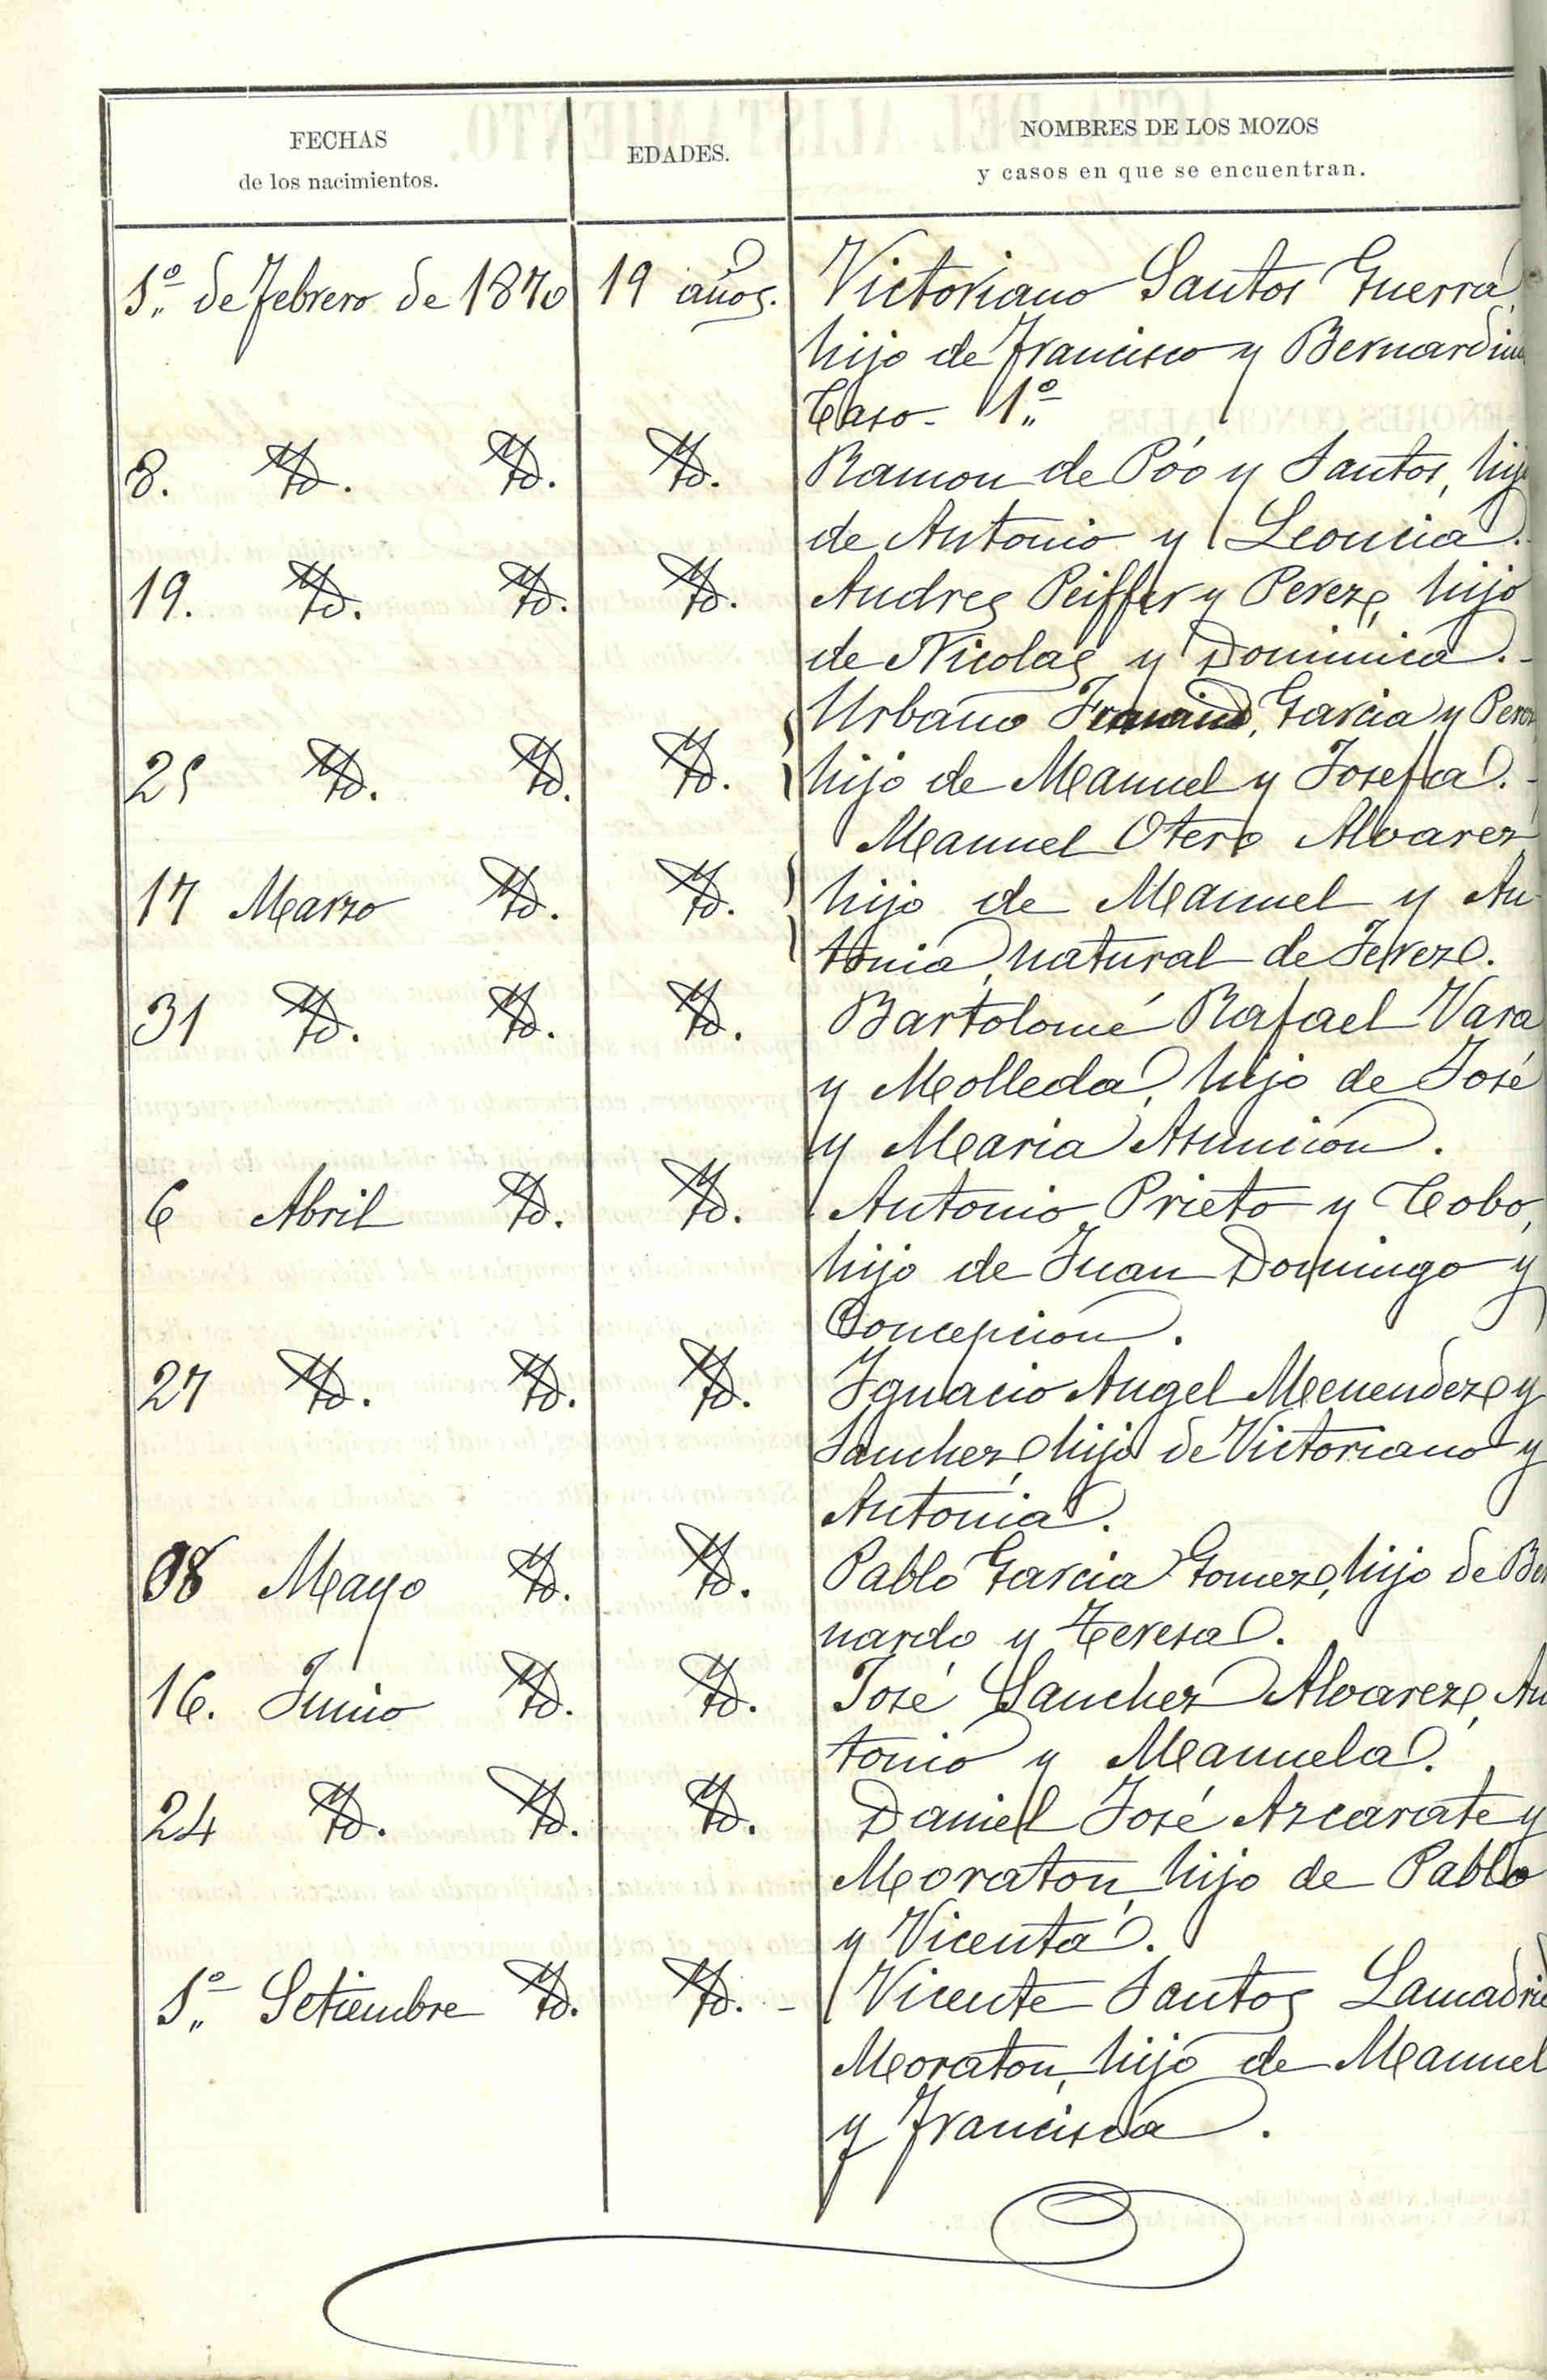 FECHAS
de los nacimientos.
EDADES.
NOMBRES DE LOS MOZOS
y casos en que se encuentran.
1º de Febrero de 1870 19 años. Victoriano Santos Guerra,
hijo de Francisco y Bernardina
Caso 1º
8. Yd. Yd. Yd. Ramon de Póo y Santos, hijo
de Antonio y Leoncia.
19. Yd. Yd. Yd. Andres Peiffer y Perez, hijo
de Nicolas y Dominica.
Urbano Garcia y Perez
25 Yd. Yd. Yd. hijo de Manuel y Josefa.
Manuel Otero Alvarez
17 Marzo Yd. Yd. hijo de Manuel y An
tonia, natural de Jerez.
31 Yd. Yd. Yd. Bartolomé Rafael Vara
y Molleda, hijo de José
y Maria Asuncion.
6 Abril Yd. Yd. Antonio Prieto y Cobo,
hijo de Juan Domingo y
Concepcion.
27 Yd. Yd. Yd. Ygnacio Angel Menendez y
Sanchez, hijo de Victoriano y
Antonia.
08 Mayo Yd. Yd. Pablo Garcia Gomez, hijo de Ber
nardo y Teresa.
16. Junio Yd. Yd. José Sanchez Alvarez, An
tonio y Manuela.
24 Yd. Yd. Yd. Daniel José Azcarate y
Moraton, hijo de Pablo
y Vicenta.
1º Setiembre Yd. Yd. Vicente Santos Lamadrid
Moraton, hijo de Manuel
y Francisca.